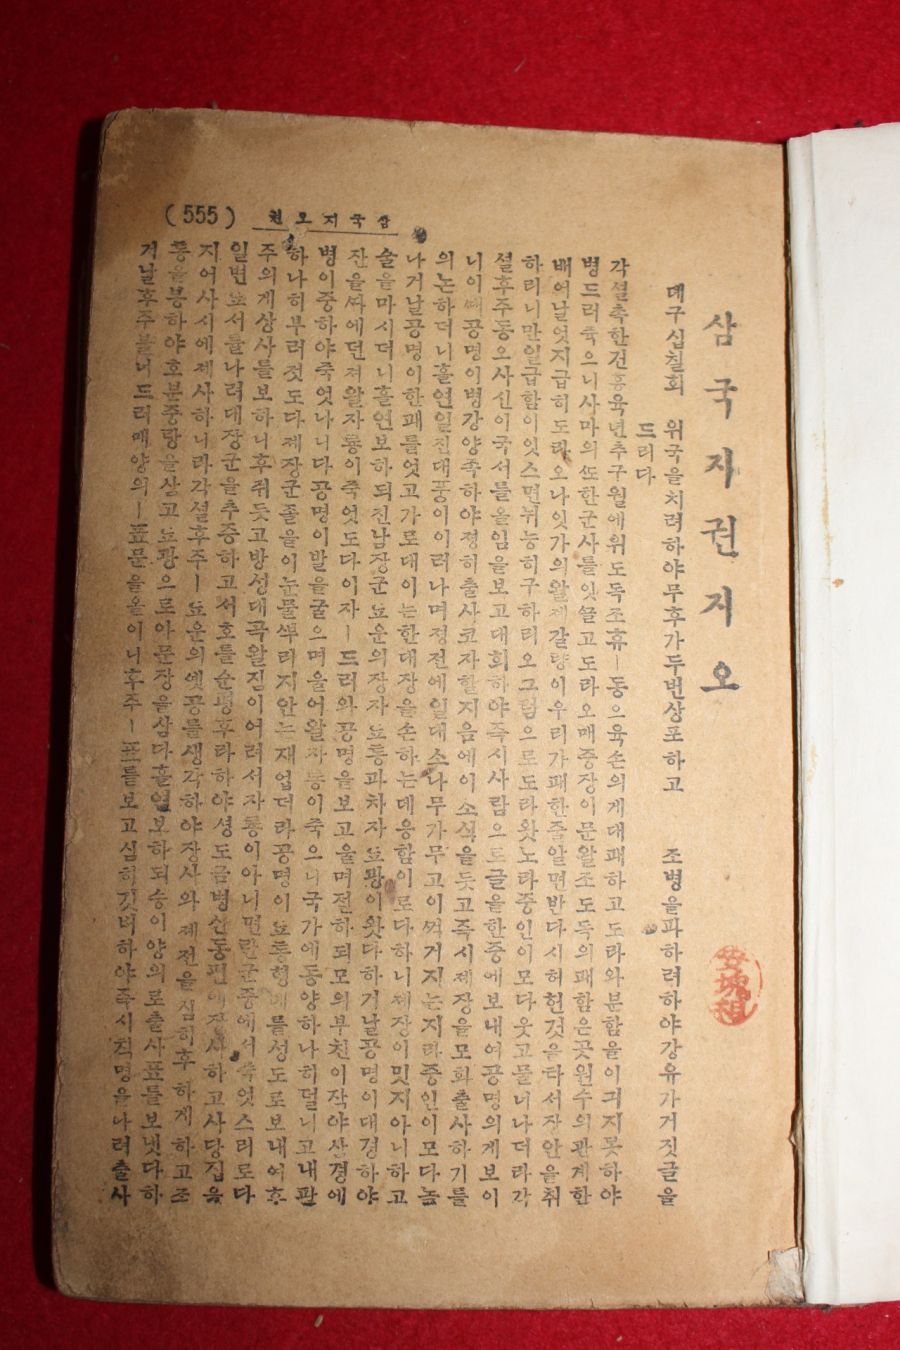 삼국지권지오
뎨구십칠회 위국을치려하야무후가두번상표하고 조병을파하려하야강유가거짓글을
드리다
각셜촉한건흥육년추구월에위도독조휴ㅣ동으육손의게대패하고도라와분함을이긔지못하야
병드러죽으니사마의또한군사를잇끌고도라오매중장이문왈조도독의패함은곳원수의관계한
배여날엇지급히도라오나잇가의왈제갈량이우리가패한줄알면반다시허헌것을타서장안을취
하리니만일급함이잇스면뉘능히구하리오그럼으로도라왓노라중인이모다웃고물너나더라각
셜후주동오사신이국서를올임을보고대희하야즉시사람으로글을한중에보내여공명의게보이
니이때공명이병강양족하야졍히출사코자할지음에이소식을듯고즉시제장을모화출사하기를
의논하더니홀연일진대풍이이러나며정전에일대소나무가무고이꺽거지는지라중인이모다놀
나거날공명이한패를엇고가로대이는한대장을손하는데응함이로다하니제장이밋지아니하고
술을마시더니홀연보하되진남장군됴운의장자됴통과차자됴광이왓다하기날공명이대경하야
잔을싸에던져왈자룡이죽엇도다이자ㅣ드러와공명을보고울며절하되모의부친이작야삼경에
병이중하야죽엇나니다공명이발을굴으며울어왈자룡이죽으니국가에동양하나히덜니고내판
하나히부러젓도다제장군졸을이눈물뿌리지안는재업더라공명이됴통형제를성도로보내여후
주의게상사를보하니후쥐듯고방성대곡왈짐이어려서자룡이아니면란군중에서죽엇스리로다
일변됴서를나려대장군을추증하고서호를순평후라하야셩도금병산동편에장사하고사당집을
지어사시에제사하니라각셜후주ㅣ됴운의옛공를생각하야장사와제전을심히후하게하고조
통을봉하야호분중랑을삼고됴광으로아문장을삼다홀연보하되승이양의로출사표를보냇다하
거날후주불너드려매양의ㅣ표문을올이니후주ㅣ표를보고심히깃버하야즉시칙명을나려출사
(555) 삼국지오권